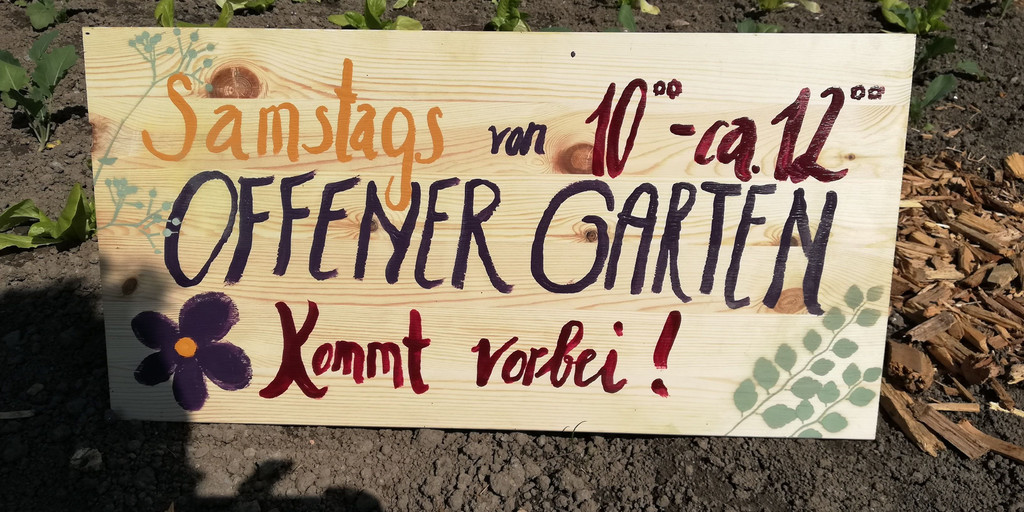 Samstags von 10°° - ca. 12°°
OFFENER GARTEN
Kommt vorbei!